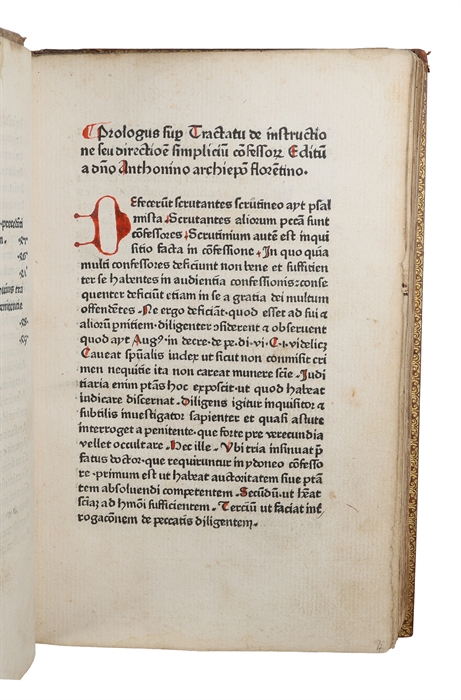 Prologus sup Tractatu de instructio
ne seu directioẽ simpliciũ cõfessoꝝ Editũ
a dño Anthonino archiepõ florẽtino.
DEfecerũt scrutantes scrutineo ayt psal
mista Scrutantes aliorum peccã sunt
cõfessores Scrutinium autẽ est inqui
sitio facta in cõfessione In quo quia
multi confessores deficiunt non bene et sufficien
ter se habentes in audientia confessionis: conse
quenter deficiũt etiam in se a gratia dei multum
offendẽtes. Ne ergo deficiãt. quod esset ad sui ⁊
alioruм pñitiem. diligenter ꝯsiderẽt ⁊ obseruent
quod ayt Augꝰ. in decre. de pe. di. vi. C. i. videlicꝫ
Caueat spũalis iudex ut sicut non cõmisit cri
men nequitie ita non careat munere scĩe. Judi
tiaria enim ptãs hoc exposcit. ut quod habeat
iudicare discernat. Diligens igitur inquisitor ⁊
subtilis inuestigator sapienter et quasi astute
interroget a penitente. que forte pre verecundia
vellet occultare. Hec ille. Vbi tria insinuat p
fatus doctor. que requiruntur in ydoneo cõfesso
re. primum est ut habeat auctoritatem siue ptãs
tem absoluendi competentem. Secũdũ. ut hẽat
sciãꝫ ad hmõi sufficientem. Terciũ ut faciat inť
rogacõnem de peccatis diligentem.
precedẽti
57
86
58
59